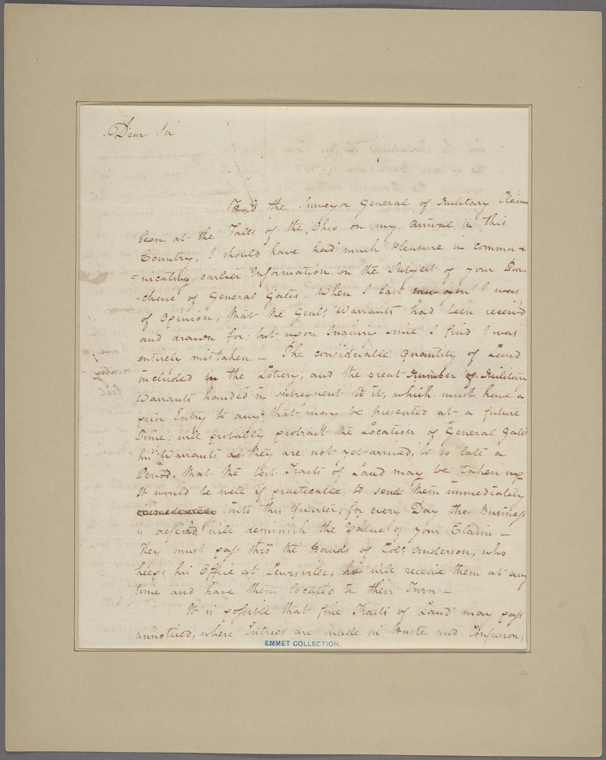 Dear Sir
Had the Surveyor General of Military Claims
been at the Falls of the Ohio on my arrival in this
Country, I should have had much pleasure in commu=
=nicating earlier Information on the Subject of your Pur=
-chase of General Gates. When I last I was
of Opinion, that the Genls Warrants had been receiv'd
and drawn for; but upon Inquiry since I find I was
entirely mistaken — The considerable Quantity of Land
included in the Lottery, and the great Number of Military
Warrants handed in subsequent to it, which must have a
prior Entry to any that may be presented at a future
Time, will probably protract the Location of General Gates
his Warrants as they are not yet arrived, to so late a
Period, that the best Tracts of Land may be taken up
It would be well if practicable to send them immediately
into this Quarter, for every Day the Business
is deferd, will deminish the Value of your Claim —
They must pass thro the Hands of Colo Anderson, who
keeps his Office at Lewisville; he will receive them at any
time and have them located in their Turn —
It is possible that fine Tracts of Land may pass
unnoticed, where Entries are made in Haste and Confusion;
EMMET COLLECTION.